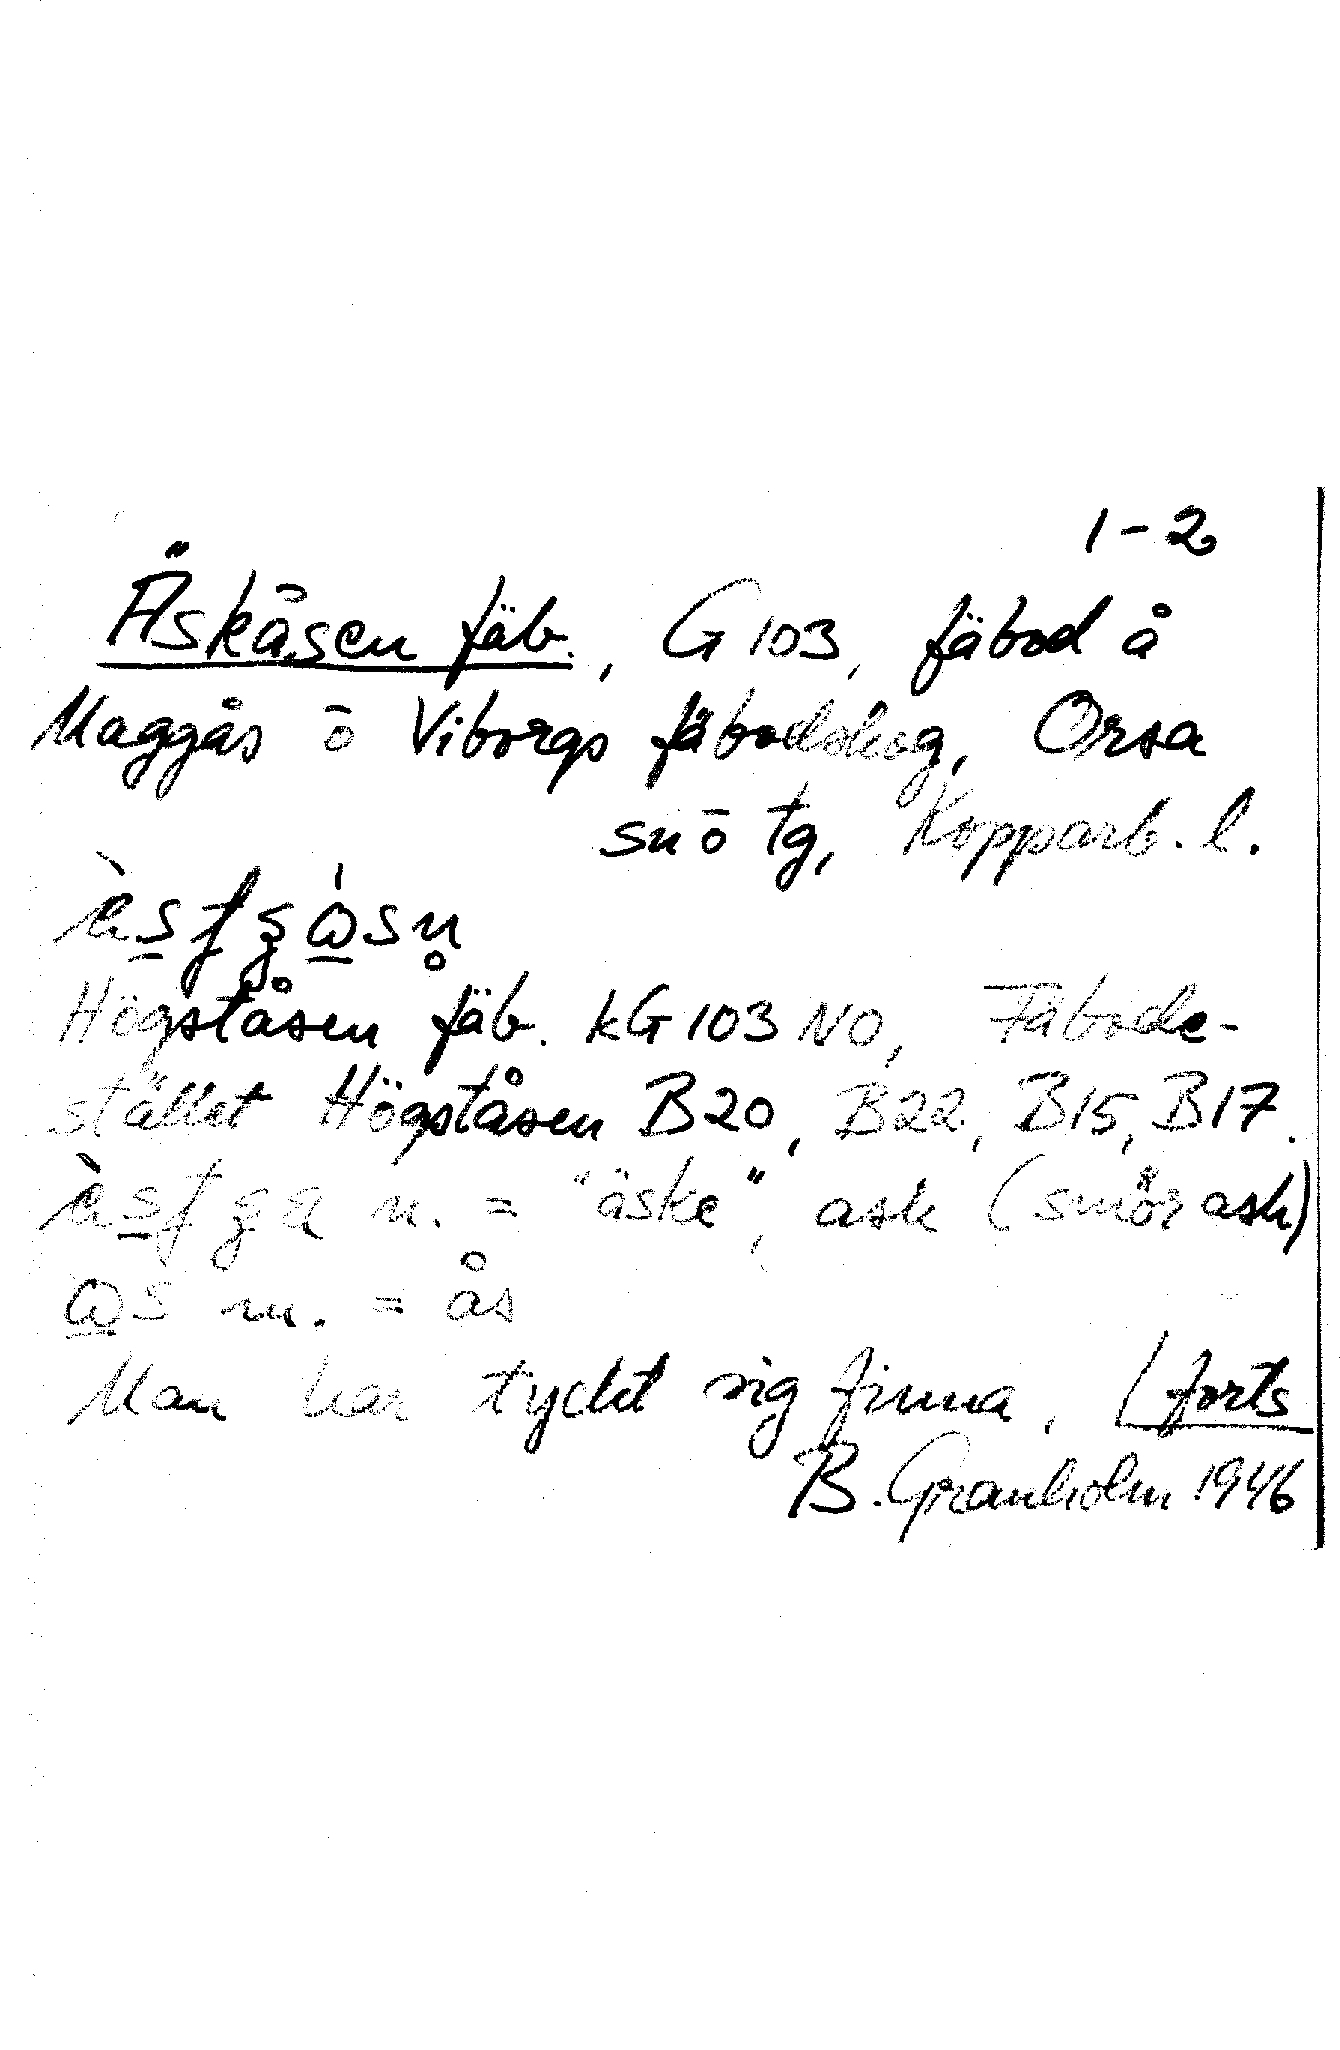 1-2
Äskåsen fäb., G 103, fäbod å
Maggås ō Viborgs fäbodskog, Orsa
sn ō tg, Kopparb. l.
Högståsen fäb. kG 103 NO, Fäbode-
stället Högståsen B20, B22, B15, B17.
n. = "äske", ask (smörask)
m. = ås
Man har tyckt sig finna, (forts
B. Granholm 1946